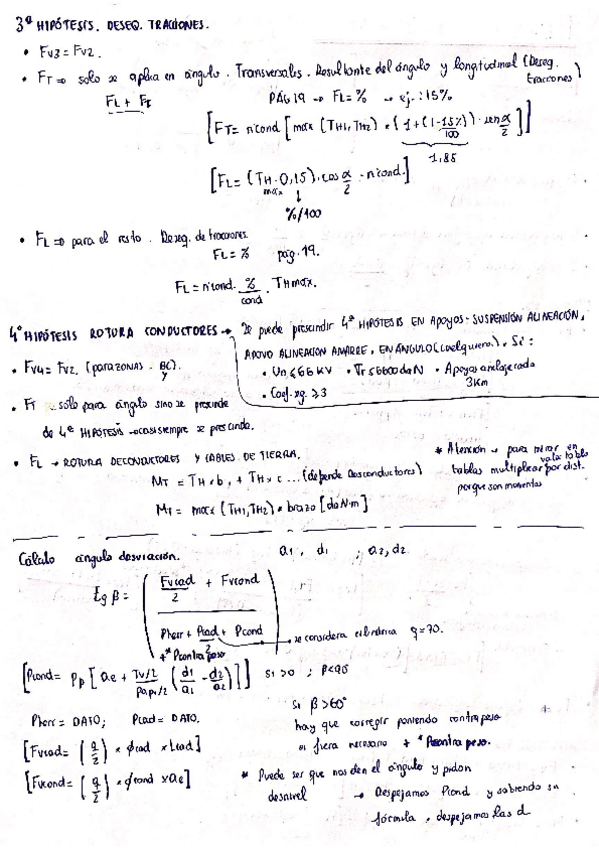 3ª HIPÓTESIS. DESEQ. TRACCIONES.
• Fv3 = Fv2.
• FT => solo se aplica en ángulo. Transversales. Resultante del ángulo y longitudinal (Deseq. tracciones)
FL + FT
PÁG 19 → FL = % → ej.: 15%
[FT = nºcond [max (TH1, TH2) × { 1 + (1 - 15%/100) } · sen α/2 ]]
1,85
[FL = (TH · 0,15) · cos α/2 · nºcond.]
max
%/100
• FL => para el resto. Deseq. de tracciones.
FL = % pág. 19.
FL = nºcond. %/cond · THmax.
4º HIPÓTESIS ROTURA CONDUCTORES → Se puede prescindir 4ª HIPÓTESIS EN APOYOS - SUSPENSIÓN ALINEACIÓN,
APOYO ALINEACIÓN AMARRE, EN ÁNGULO (cualquiera). Si:
• Fv4 = Fv2. (para zonas B y C)
• Un ≤ 66 kV • Tr ≤ 6600 daN • Apoyo anclaje cada 3 Km
• Coef. sg. ≥ 3
• FT → sólo para ángulo sino se prescinde
de 4ª HIPÓTESIS → casi siempre se prescinde.
• FL → ROTURA DE CONDUCTORES Y CABLES DE TIERRA.
* Atención → para mirar en valor tabla
tablas multiplicar por dist.
porque son momentos
MT = TH × b, + TH × c ... (depende los conductores)
MT = max (TH1, TH2) × brazo [daN·m]
Cálculo ángulo desviación. a1, d1 ; a2, d2
tg β = ( Fvcad/2 + Fvcond
Pherr + Pcad/2 + Pcond
+ * Pcontrapeso )
→ se considera cilíndrica q = 70.
[Pcond = Pp [ae + Tv/2 / Pap v/2 (d1/a1 - d2/a2)]] si > 0 ; β < 90
Pherr = DATO; Pcad = DATO.
Si β > 60°
hay que corregir poniendo contrapeso
si fuera necesario + * Pcontrapeso.
[Fvcad = (q/2) × ϕcad × Lcad]
[Fvcond = (q/2) × ϕcond × ae]
* Puede ser que nos den el ángulo y pidan
desnivel → Despejamos Pcond y sabiendo su
fórmula, despejamos las d